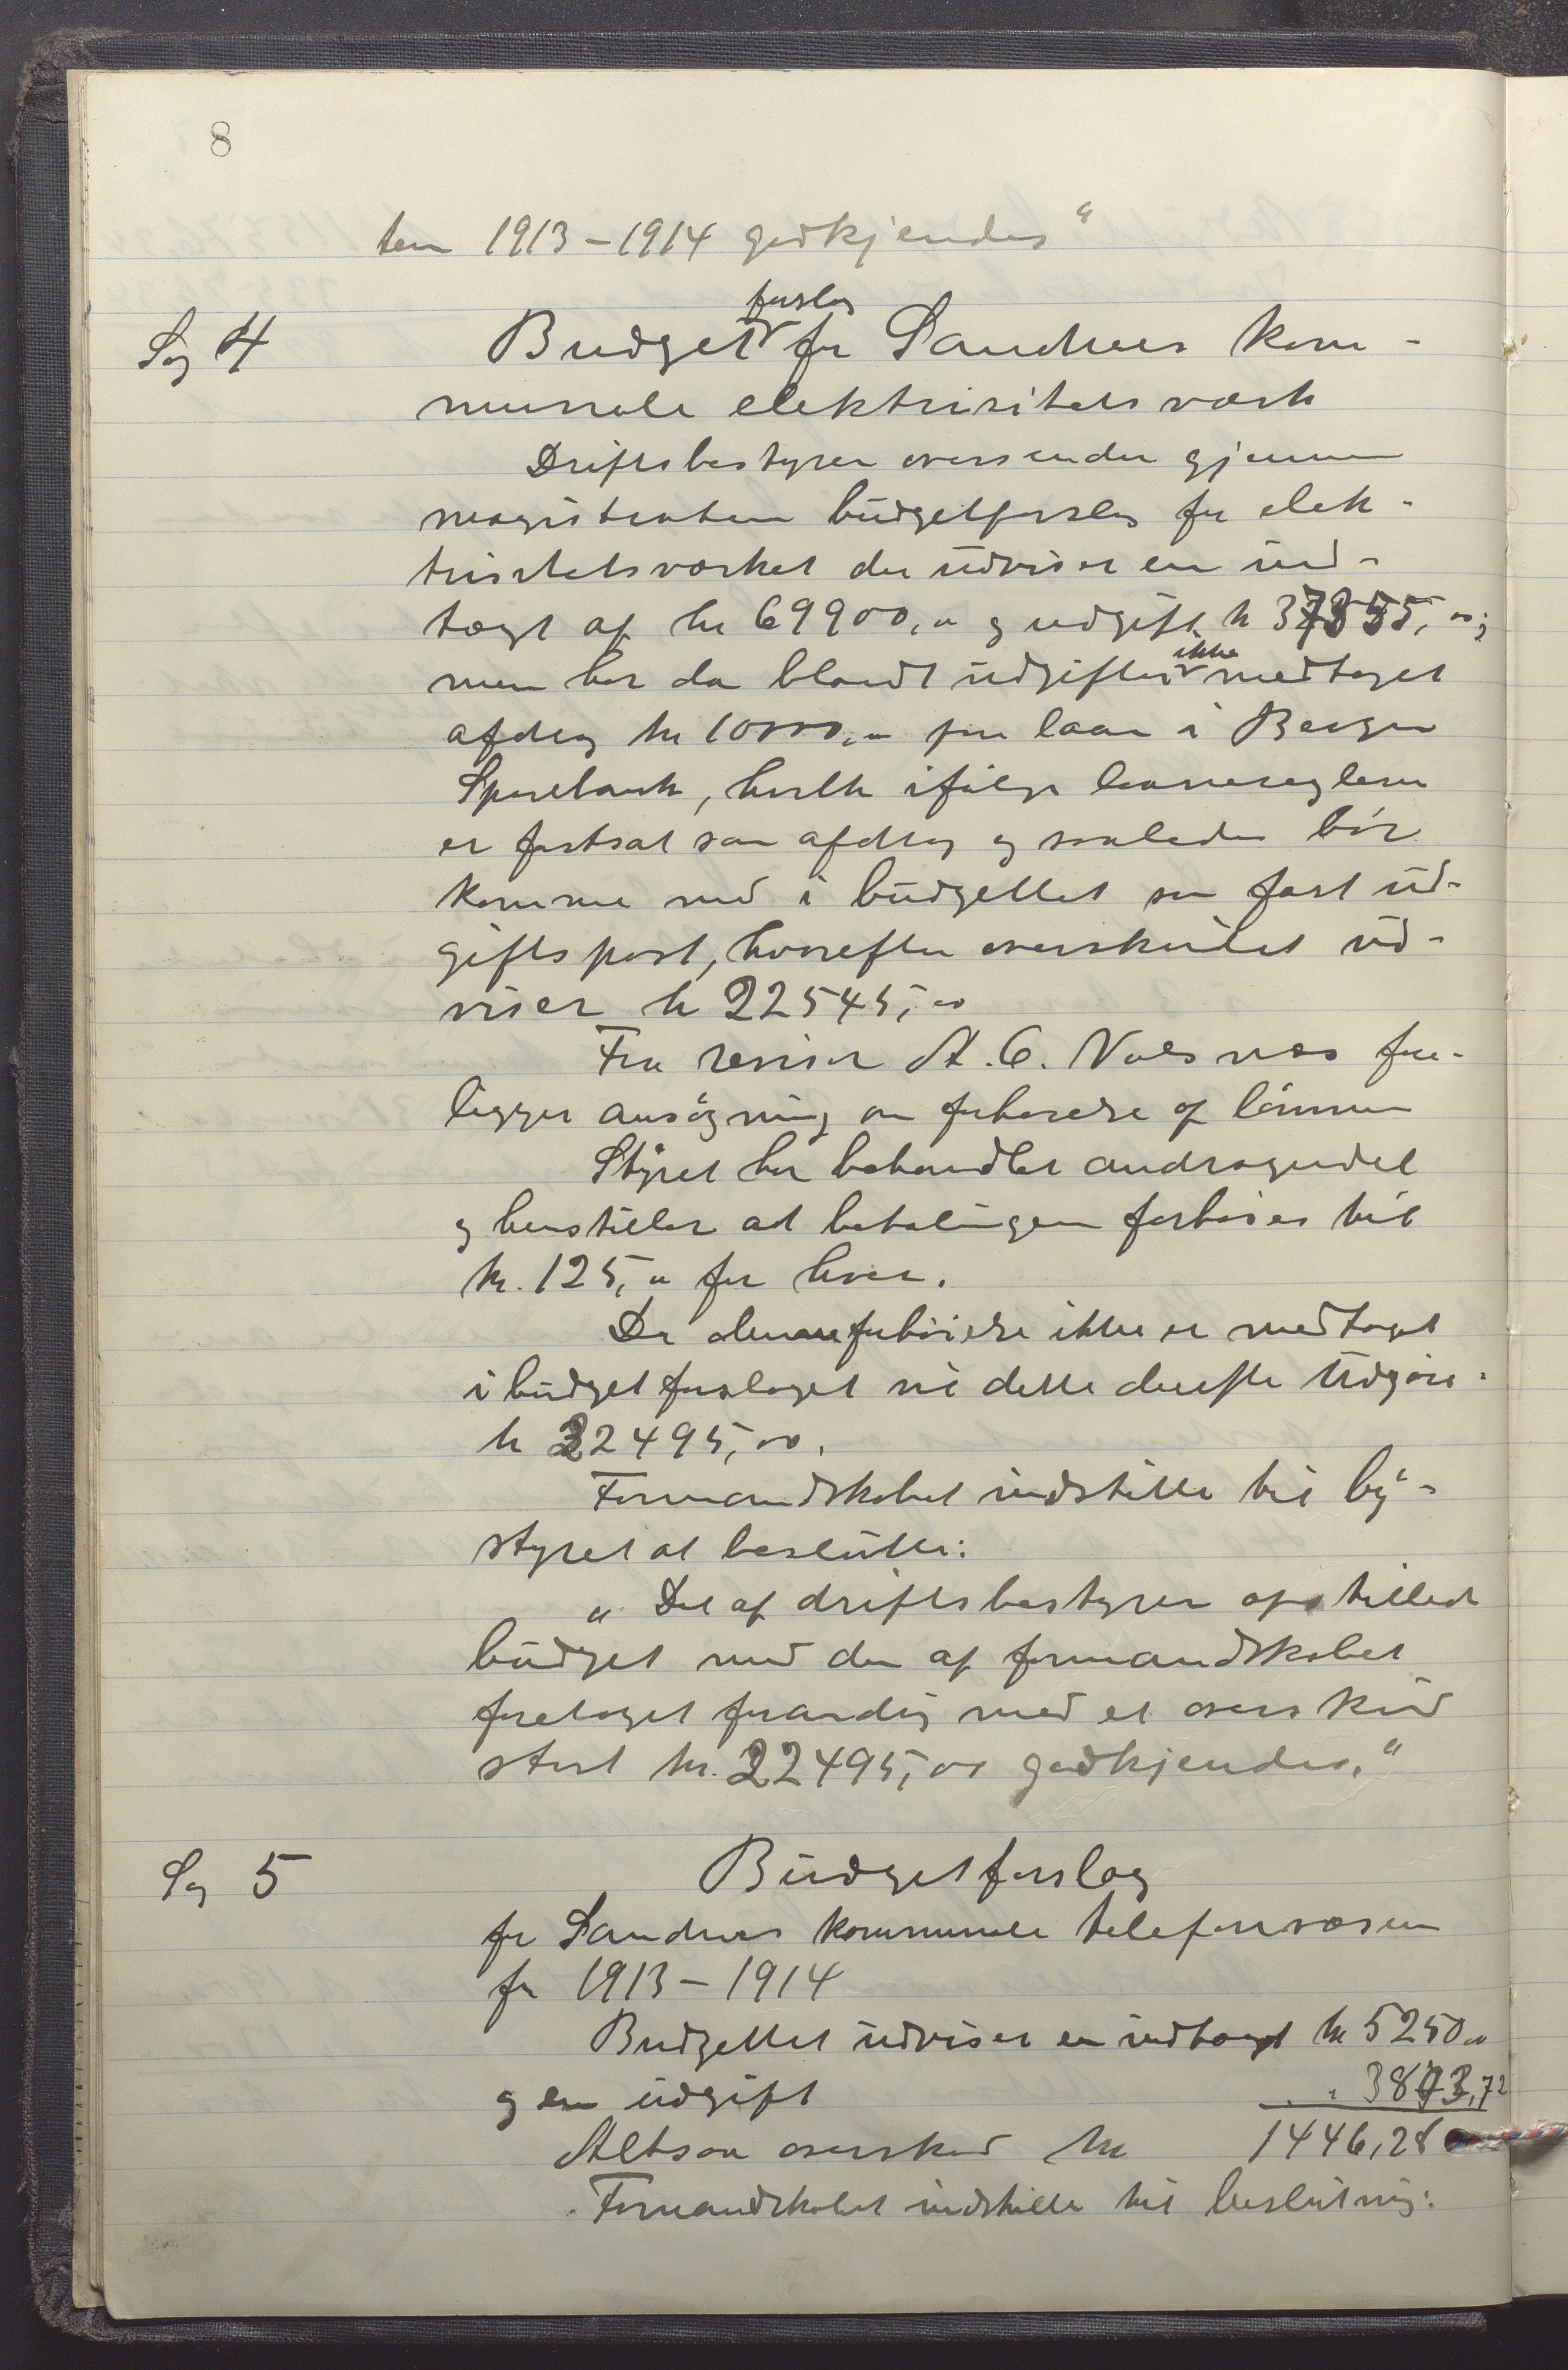 8
ten 1913-1914 godkjendes"
Sag 4
Budgetforslag for Sandnes kom-
munale elektrisitetsværk
Driftsbestyrer oversender gjennem
magistraten budgetforslag for elek-
trisitetsverket der udviser en ind-
tægt af kr 69900,00 og udgift kr 37355,00;
men har da blandt udgifter ikke medtaget
afdrag kr 10000,00 paa laan i Bergen
Sparebank, hvilke ifølge laanereglerne
er fastsat som afdrag og saaledes bør
komme med i budgettet som fast ud-
giftspost, hvorefter overskudet ud-
viser kr 22545,00
Fra revisor A. C. Naesnes fore-
ligger ansøgning om forhøielse af lønnen
Styret har behandlet andragendet
og henstiller at betalingen forhøies til
kr. 125,00 for hver.
Da denne forhøielse ikke er medtaget
i budgetforslaget vil dette derefter udgjøre
kr 22495,00.
Formandskabet indstiller til by-
styret at beslutte:
"Det af driftsbestyrer opstillede
budget med den af formandskabet
foretaget forandring med et overskud
stort kr. 22495,00 godkjendes."
Sag 5
Budgetforslag
for Sandnes kommunale telefonvæsen
for 1913-1914
Budgettet udviser en indtægt kr 5250,00
og en udgift " 3803,72
Altsaa overskud kr 1446,28
Formandskabet indstiller til beslutning: